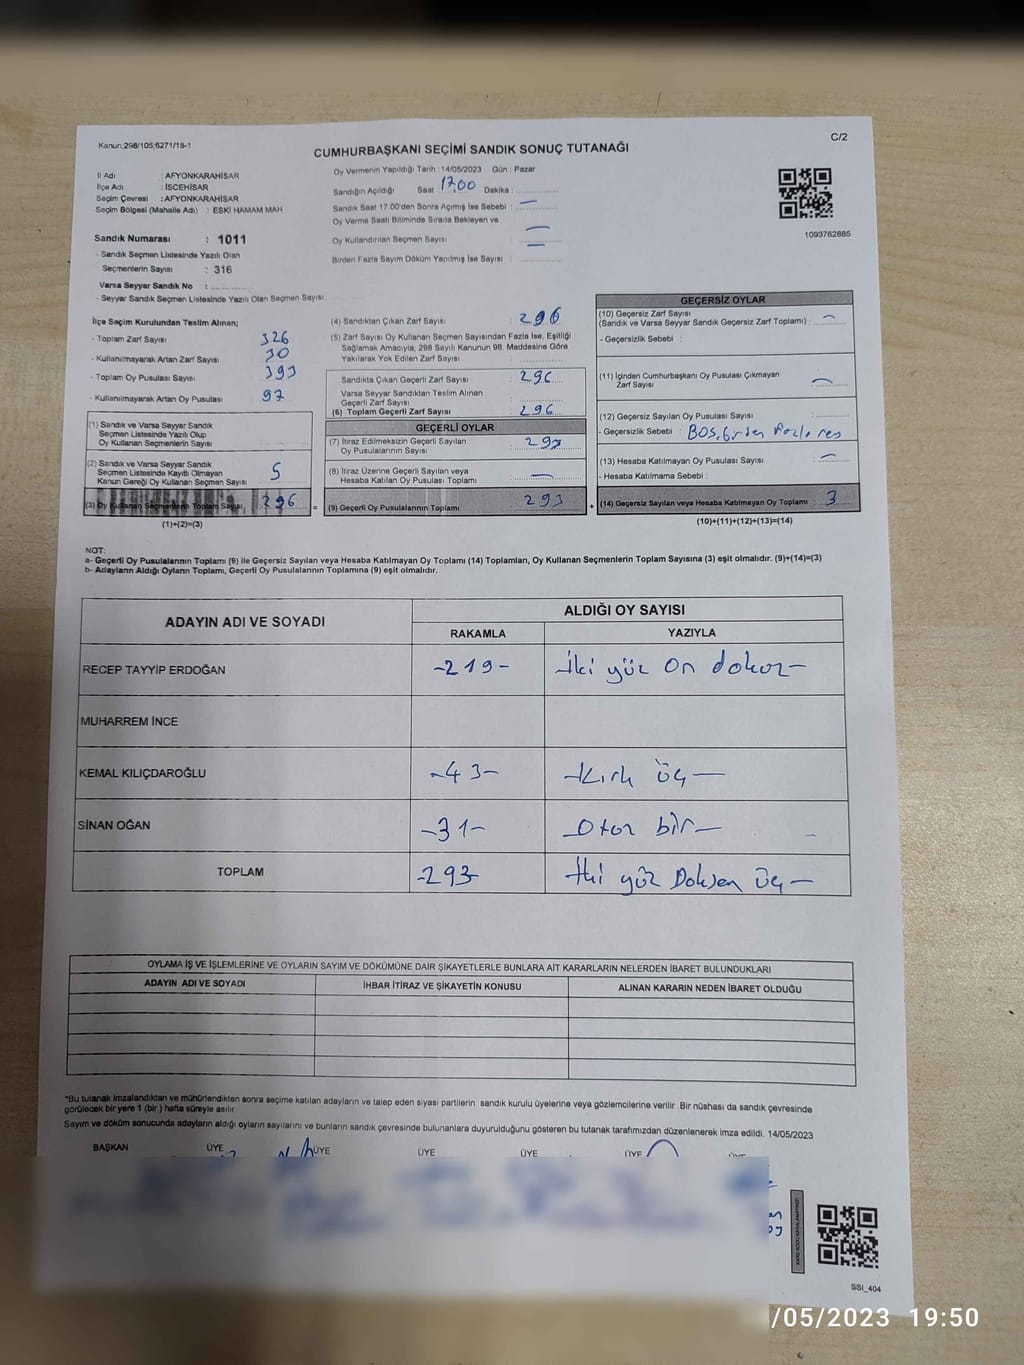 Kanun;298/105;6271/18-1
C/2
CUMHURBAŞKANI SEÇİMİ SANDIK SONUÇ TUTANAĞI
İl Adı : AFYONKARAHİSAR
İlçe Adı : İSCEHİSAR
Seçim Çevresi : AFYONKARAHİSAR
Seçim Bölgesi (Mahalle Adı) : ESKİ HAMAM MAH
Sandık Numarası : 1011
- Sandık Seçmen Listesinde Yazılı Olan
Seçmenlerin Sayısı : 316
Varsa Seyyar Sandık No :
- Seyyar Sandık Seçmen Listesinde Yazılı Olan Seçmen Sayısı
Oy Vermenin Yapıldığı Tarih : 14/05/2023 Gün : Pazar
Sandığın Açıldığı Saat 17.00 Dakika :
Sandık Saat 17:00'den Sonra Açılmış İse Sebebi : —
Oy Verme Saati Bitiminde Sırada Bekleyen ve
Oy Kullandırılan Seçmen Sayısı —
Birden Fazla Sayım Döküm Yapılmış İse Sayısı :
1093762885
İlçe Seçim Kurulundan Teslim Alınan;
- Toplam Zarf Sayısı 326
- Kullanılmayarak Artan Zarf Sayısı 30
- Toplam Oy Pusulası Sayısı 393
- Kullanılmayarak Artan Oy Pusulası 97
(1) Sandık ve Varsa Seyyar Sandık
Seçmen Listesinde Yazılı Olup
Oy Kullanan Seçmenlerin Sayısı
(2) Sandık ve Varsa Seyyar Sandık
Seçmen Listesinde Kayıtlı Olmayan
Kanun Gereği Oy Kullanan Seçmen Sayısı 5
(3) Oy Kullanan Seçmenlerin Toplam Sayısı 296
(1)+(2)=(3)
(4) Sandıktan Çıkan Zarf Sayısı : 296
(5) Zarf Sayısı Oy Kullanan Seçmen Sayısından Fazla İse, Eşitliği
Sağlamak Amacıyla; 298 Sayılı Kanunun 98. Maddesine Göre
Yakılarak Yok Edilen Zarf Sayısı
Sandıkta Çıkan Geçerli Zarf Sayısı : 296
Varsa Seyyar Sandıktan Teslim Alınan
Geçerli Zarf Sayısı
(6) Toplam Geçerli Zarf Sayısı : 296
GEÇERLİ OYLAR
(7) İtiraz Edilmeksizin Geçerli Sayılan
Oy Pusulalarının Sayısı : 293
(8) İtiraz Üzerine Geçerli Sayılan veya
Hesaba Katılan Oy Pusulası Toplamı : —
= (9) Geçerli Oy Pusulalarının Toplamı : 293
GEÇERSİZ OYLAR
(10) Geçersiz Zarf Sayısı
(Sandık ve Varsa Seyyar Sandık Geçersiz Zarf Toplamı) : —
- Geçersizlik Sebebi :
(11) İçinden Cumhurbaşkanı Oy Pusulası Çıkmayan
Zarf Sayısı —
(12) Geçersiz Sayılan Oy Pusulası Sayısı :
- Geçersizlik Sebebi : BOŞ, birden
(13) Hesaba Katılmayan Oy Pusulası Sayısı : —
- Hesaba Katılmama Sebebi :
+ (14) Geçersiz Sayılan veya Hesaba Katılmayan Oy Toplamı : 3
(10)+(11)+(12)+(13)=(14)
NOT:
a- Geçerli Oy Pusulalarının Toplamı (9) ile Geçersiz Sayılan veya Hesaba Katılmayan Oy Toplamı (14) Toplamları, Oy Kullanan Seçmenlerin Toplam Sayısına (3) eşit olmalıdır. (9)+(14)=(3)
b- Adayların Aldığı Oyların Toplamı, Geçerli Oy Pusulalarının Toplamına (9) eşit olmalıdır.
ADAYIN ADI VE SOYADI
ALDIĞI OY SAYISI
RAKAMLA YAZIYLA
RECEP TAYYİP ERDOĞAN -219- İki yüz on dokuz-
MUHARREM İNCE
KEMAL KILIÇDAROĞLU -43- -Kırk üç-
SİNAN OĞAN -31- -Otuz bir-
TOPLAM -293- İki yüz Doksan üç-
OYLAMA İŞ VE İŞLEMLERİNE VE OYLARIN SAYIM VE DÖKÜMÜNE DAİR ŞİKAYETLERLE BUNLARA AİT KARARLARIN NELERDEN İBARET BULUNDUKLARI
ADAYIN ADI VE SOYADI İHBAR İTİRAZ VE ŞİKAYETİN KONUSU ALINAN KARARIN NEDEN İBARET OLDUĞU
*Bu tutanak imzalandıktan ve mühürlendikten sonra seçime katılan adayların ve talep eden siyasi partilerin sandık kurulu üyelerine veya gözlemcilerine verilir. Bir nüshası da sandık çevresinde
görülecek bir yere 1 (bir) hafta süreyle asılır.
Sayım ve döküm sonucunda adayların aldığı oyların sayılarını ve bunların sandık çevresinde bulunanlara duyurulduğunu gösteren bu tutanak tarafımızdan düzenlenerek imza edildi. 14/05/2023
BAŞKAN ÜYE ÜYE ÜYE ÜYE ÜYE
SSI_404
/05/2023 19:50